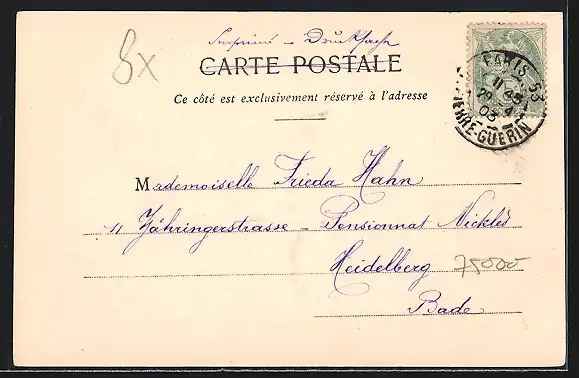 8x
Imprimé - Drucksache
CARTE POSTALE
Ce côté est exclusivement réservé à l'adresse
PARIS 53
11 45
03
PIERRE-GUERIN
Mademoiselle Frieda Hahn
11 Zähringerstrasse - Pensionnat Nicklès
Heidelberg 75000
Bade